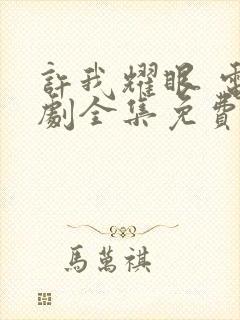 許我耀眼 電
劇全集免費
馬萬祺